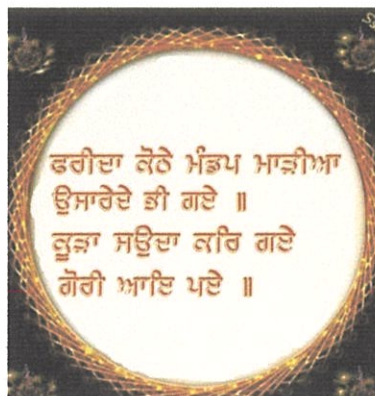 ਫਰੀਦਾ ਕੋਠੇ ਮੰਡਪ ਮਾੜੀਆ
ਉਸਾਰੇਦੇ ਭੀ ਗਏ ॥
ਕੂੜਾ ਸਉਦਾ ਕਰਿ ਗਏ
ਗੋਰੀ ਆਇ ਪਏ ॥